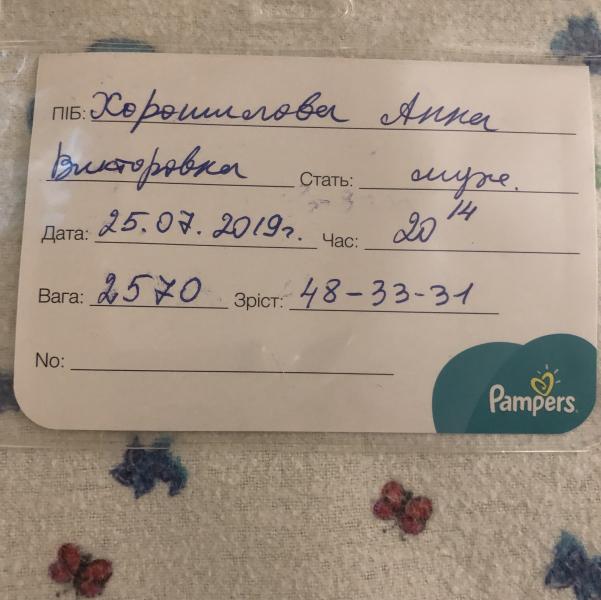 ПІБ: Хорошилова Анна
Викторовна Стать: муж.
Дата: 25.07.2019г. Час: 20 14
Вага: 2570 Зріст: 48-33-31
No:
Pampers